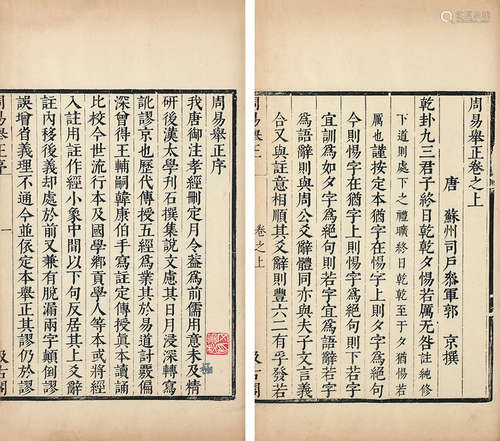 周易舉正卷之上
唐 蘇州司戶叅軍郭 京撰
乾卦九三君子終日乾乾夕惕若厲无咎註純修
下道則處下之禮曠終日乾乾至于夕猶惕若
厲也謹按定本猶字在惕字上則夕字爲絕句
今則惕字在猶字上惕字爲絕句下則若字
宜訓爲如夕字爲絕句則若字宜爲語辭若字
爲語辭則與周公爻辭體同亦與夫子文言義
合又與註意相順其爻辭則豐六二有孚發若
卷之上
周易舉正序
我唐御注孝經刪定月令益爲前儒用意未及精
研後漢太學刋石撰集說文慮其日月浸深轉寫
訛謬京也歷代傳授五經爲業其於易道計覈偏
深曾得王輔嗣韓康伯手寫註定傳授眞本讀誦
比校今世流行本及國學鄉貢舉人等本或將經
入註用註作經小象中間以下句反居其上爻辭
註內移後義却處於前又兼有脫漏兩字顛倒謬
誤增省義理不通今並依定本舉正其謬仍於謬
一